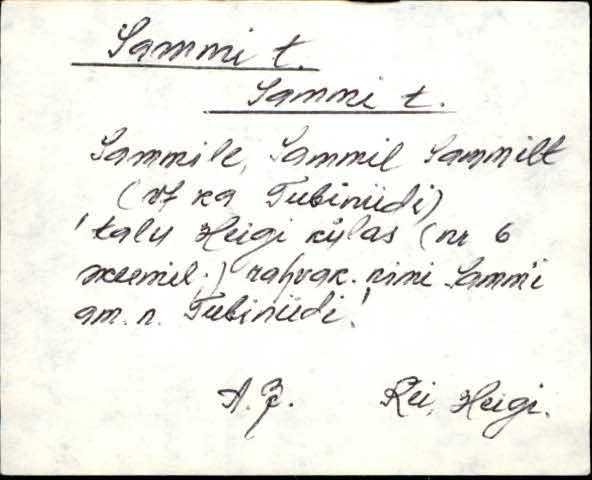 Sammi t.
Sammi t.
Sammile, Sammil Sammilt
(vt ka Tubiniidi)
'talu Heigi külas (nr 6
skeemil.) rahvak. nimi Sammi
am. n. Tubiniidi'.
A. Z. Rei, Heigi.